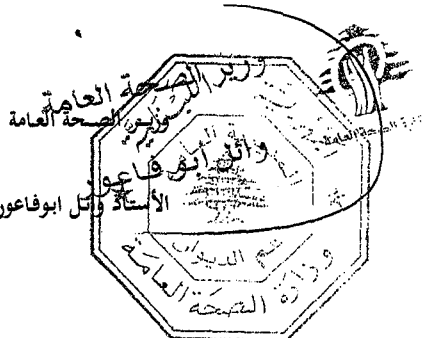 وزير الصحة العامة
وزير الصحة العامة
وائل أبو فاعور
الأستاذ وائل ابوفاعور
قسم الديوان
وزارة الصحة العامة
وزارة الصحة العامة